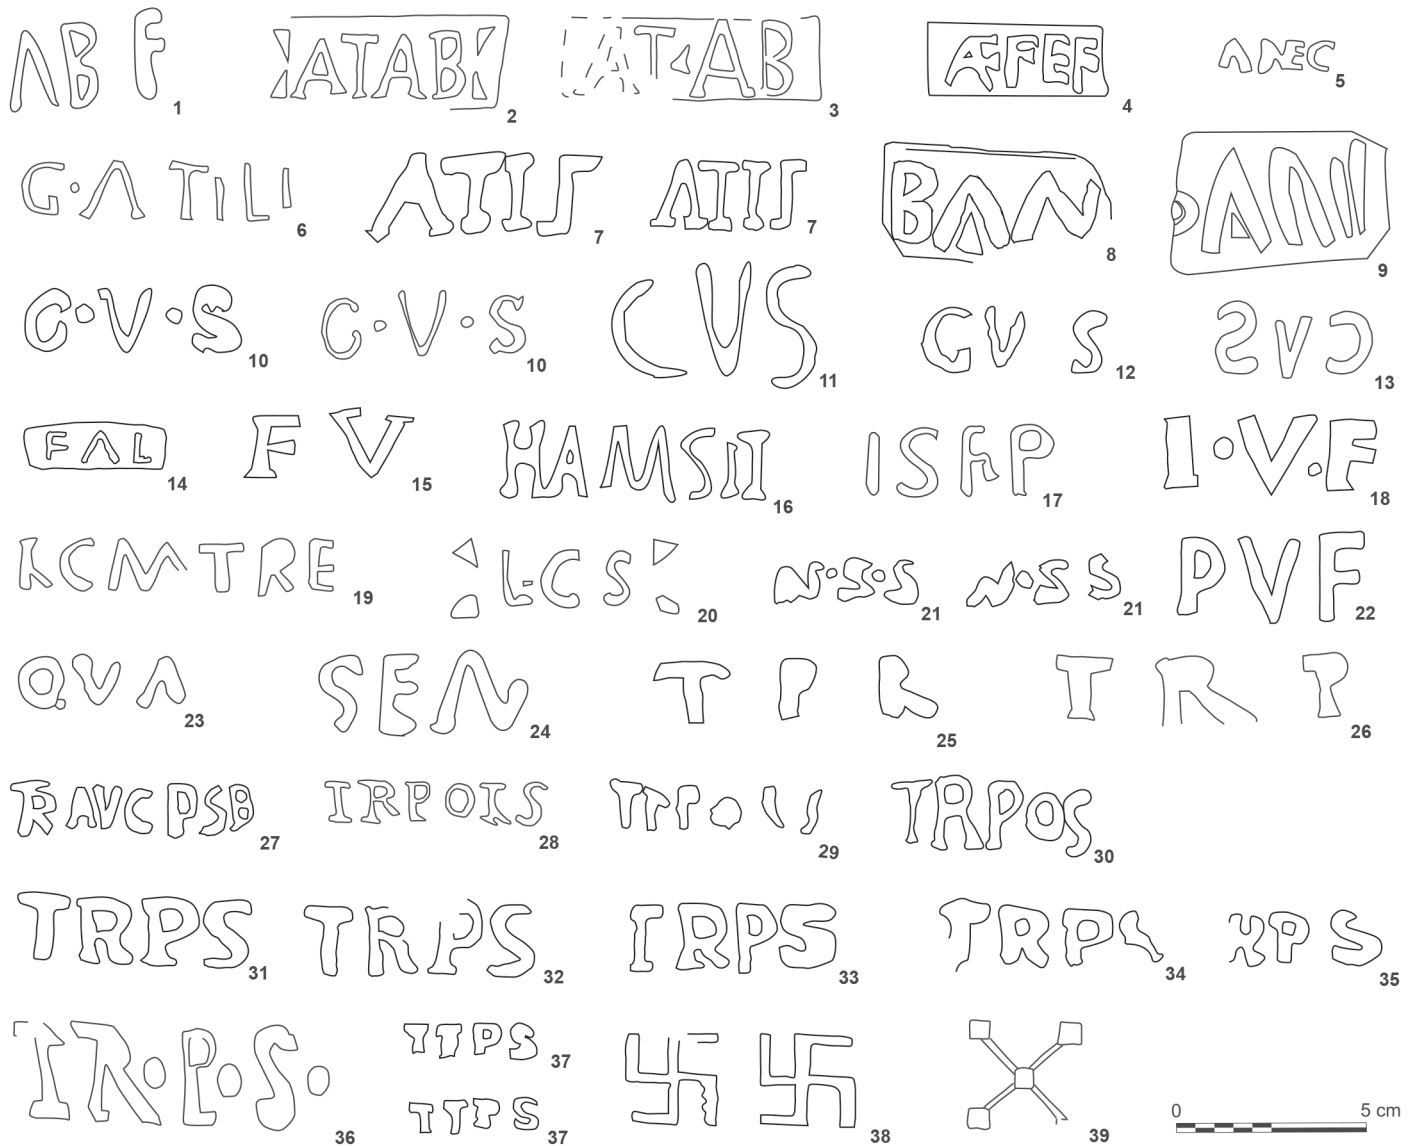 ΛB F 1
ATAB 2
AT AB 3
ÆFEF 4
ΛNEC 5
G·Λ TILI 6
ΛTIS 7
ΛTIS 7
BAN 8
ANI 9
C·V·S 10
C·V·S 10
CVS 11
CV S 12
SVC 13
FΛL 14
F V 15
HAMSII 16
IS P 17
I·V·F 18
KCMTRE 19
LCS 20
N·S·S 21
N·S S 21
PVF 22
QVΛ 23
SEN 24
T P R 25
T R P 26
TR AVC PSB 27
IRP O S 28
29
TRPOS 30
TRPS 31
TRPS 32
IRPS 33
TRPS 34
RP S 35
TR·P·S· 36
TTPS 37
TTPS 37
38
39
0 5 cm